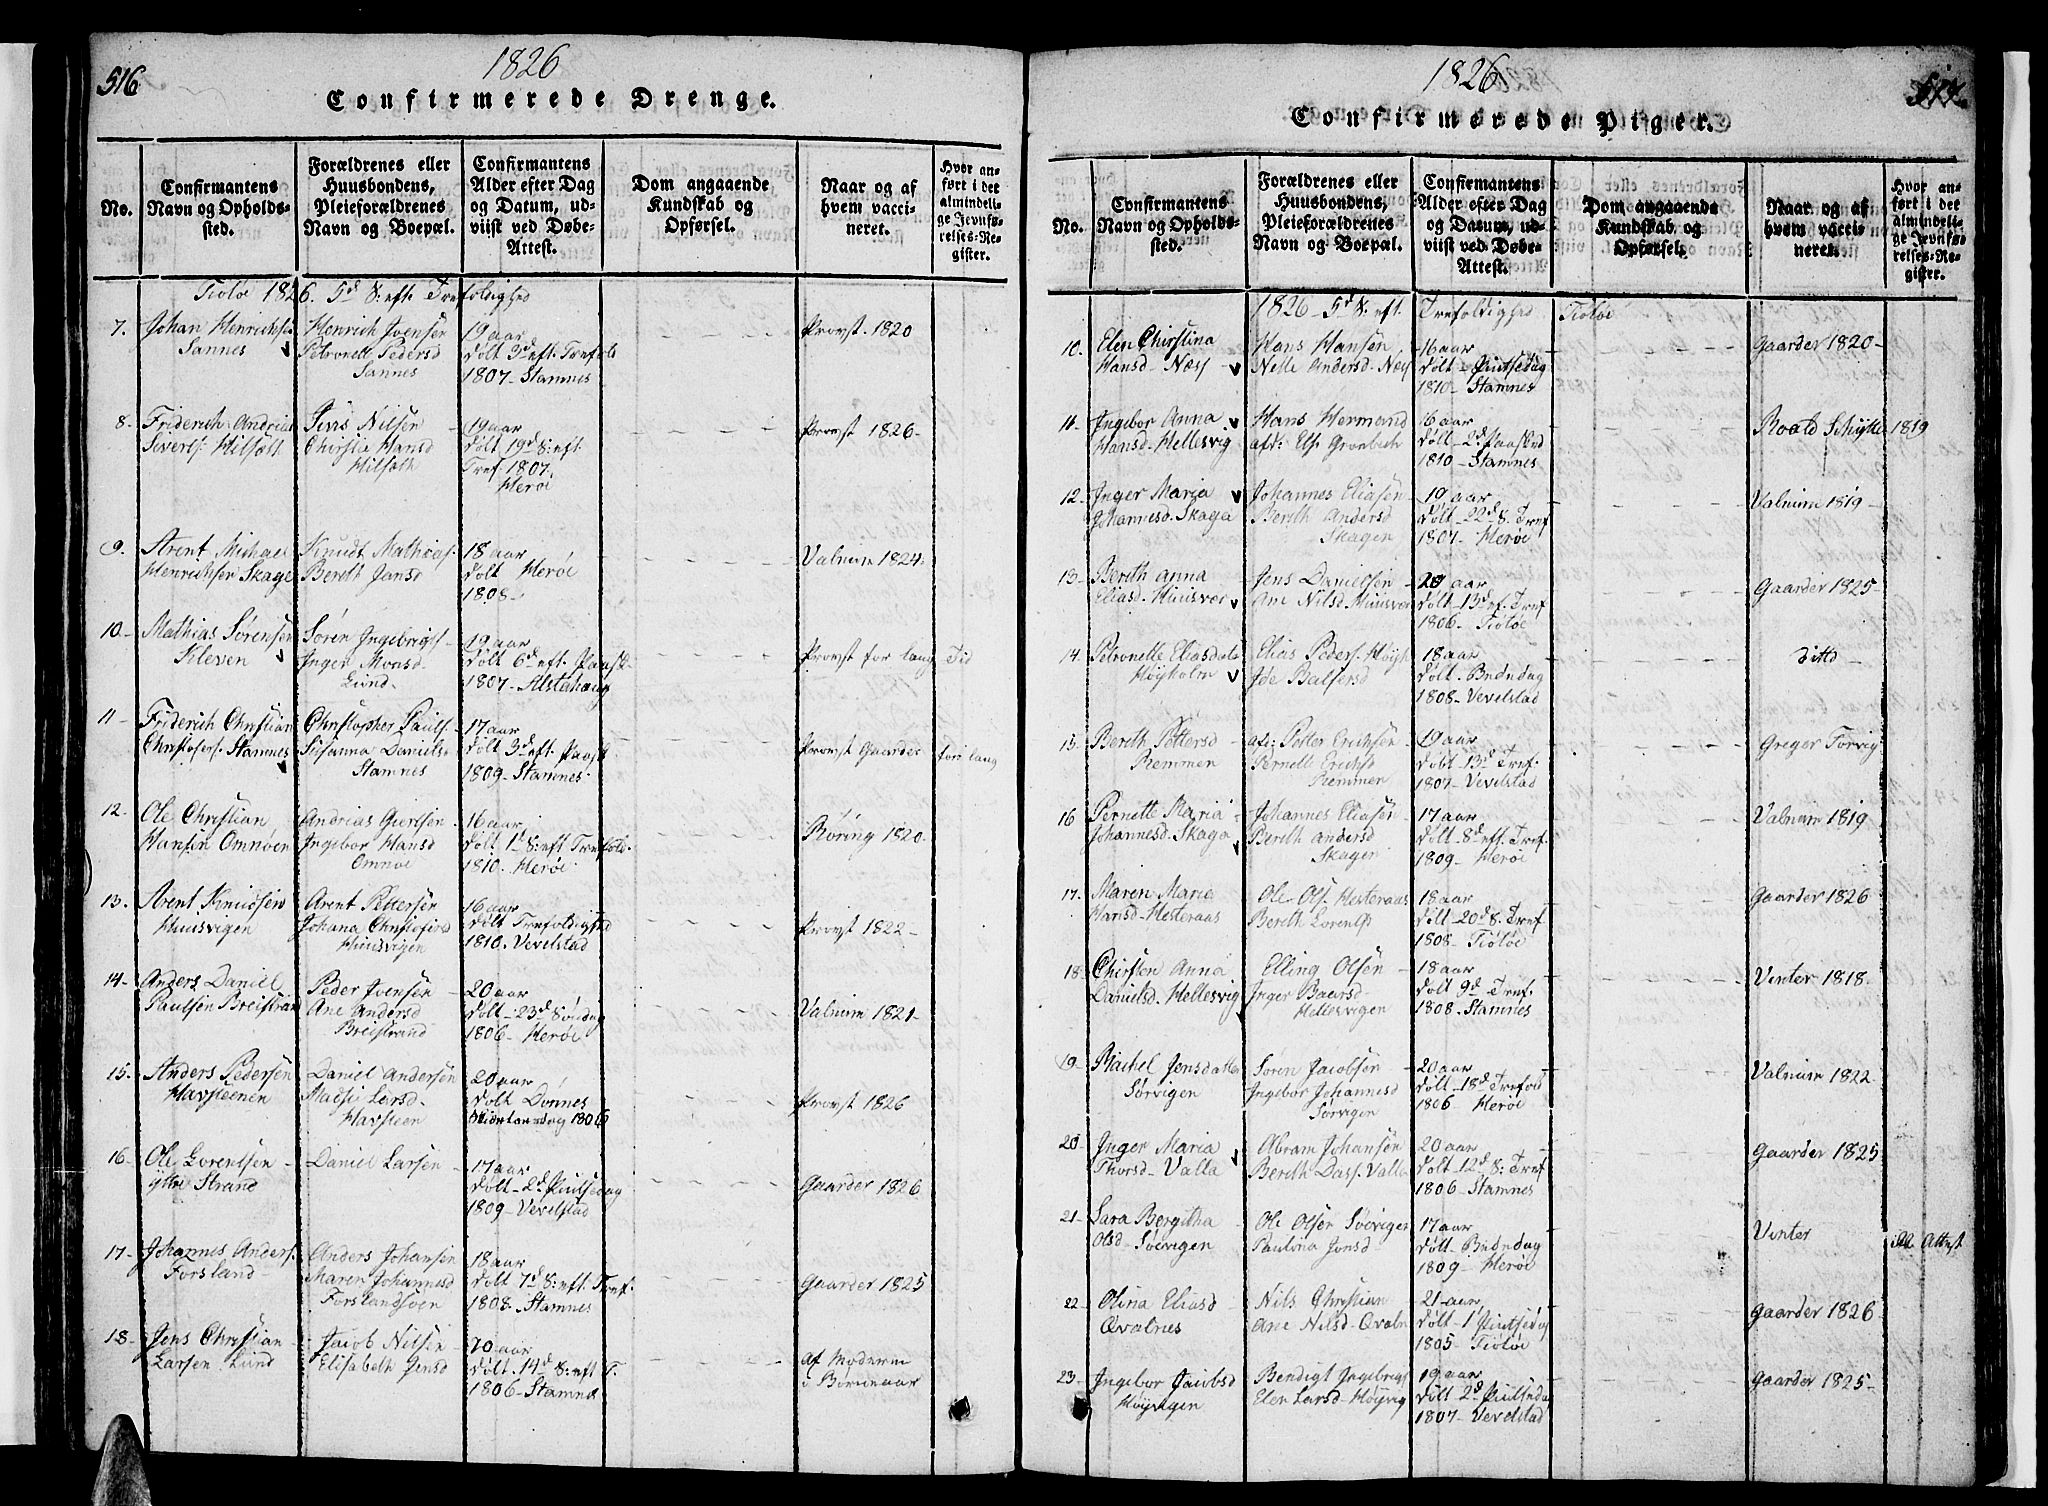 516
1826
Confirmerede Drenge.
No.
Confirmantens
Navn og Opholds-
sted.
Forældrenes eller
Huusbondens,
Pleieforældrenes
Navn og Boepæl.
Confirmantens
Alder efter Dag
og Datum, ud-
viist ved Døbe-
Attest.
Dom angaaende
Kundskab og
Opførsel.
Naar og af
hvem vacci-
neret.
Hvor an-
ført i det
almindeli-
ge Jevnfø-
relses-Re-
gister.
Tiøtøe 1826. 5d S: eft: Trefoldighed
7. Johan Henrichsen
Sannes
Henrich Ivensen
Petronell Pedersd
Sannes
19 aar
døbt 3d eft. Trefold
1807 - Stamnes
Provst 1820
8. Friderich Andrias
Siverts: Hilsæth
Sivis Nilsen
Chirstia Hansd
Hilsæth
19 aar
døbt 19d S: eft
Tref 1807.
Herøe
Provst 1826
9. Arent Michael
Henrichsen Skage
Knudt Mathias:
Bereth Jansd
18 aar
døbt Herøe
1808
Valnum 1824
10 Mathias Sørensen
Kleven
Søren Ingebrigts
Inger Monsd
Lund
19 aar
døbt 6d eft. Paaske
1807 - Alstahaug
Provst for lang Tid
11 Friderich Christian
Christofers. Stamnes
Christopher Pauls.
Susanna Daniels
Stamnes
17 aar
døbt 3d eft. Paask
1809 - Stamnes
Provst Gaarder for lang
12. Ole Christian
Hansen Omnøen
Andrias Giertsen
Ingebor Hansd
Omnøe
16 aar
døbt 1d S: eft Trefold.
1810. Herøe
Røring 1820
13. Arent Knudsen
Huusvigen
Arent Pettersen
Johana Christofersd
Huusvigen
16 aar
døbt Trefoldighed
1810. Vevelstad
Provst 1822
14. Anders Daniel
Paulsen Breistrand
Peder Ivensen
Ane Andersd
Breistrand
20 aar
døbt 23d Søndag
1806 - Herøe
Valnum 1821
15. Anders Pedersen
Havsteenen
Daniel Andersen
Malsi Larsd
Havsteen
20 aar
døbt Dønnes
1806
Provst 1826
16 Ole Lorentsen
ytre Strand
Daniel Larsen
17 aar
døbt - 2d Pintsedag
1809 - Vevelstad
Gaarder 1826
17 Johannes Anders.
Forsland
Anders Johansen
Maren Johannesd
Forslandsøen
18 aar
døbt 7d S: eft Tref:
1808 - Stamnes
Gaarder 1825
18 Jens Christian
Larsen Lund
Jacob Nilsen
Elisabeth Jensd
20 aar
døbt. 14d S: eft T.
1806 - Stamnes
af Moderen
i Børneaar
1826
517.
Confirmerede Piger.
No.
Confirmantens
Navn og Opholds-
sted.
Forældrenes eller
Huusbondens,
Pleieforældrenes
Navn og Boepæl.
Confirmantens
Alder efter Dag
og Datum, ud-
viist ved Døbe-
Attest.
Dom angaaende
Kundskab og
Opførsel.
Naar og af
hvem vacci-
neret.
Hvor an-
ført i det
almindeli-
ge Jevnfø-
relses-Re-
gister.
1826 - 5d S: eft. Trefoldighed Tiøtøe
10. Elen Chirstina
Hansd - Næss
Hans Hansen
Nille Andersd - Næss
16 aar
døbt - Pintsedag
1810 - Stamnes
Gaarder 1820
11. Ingebor Anna
Hansd - Hellesvig
Hans Hermand
aft: Else Grønbech
16 aar
døbt - 2d Paasked
1810 - Stamnes
Roald Schytte 1819
12. Inger Maria
Johannesd. Skaga
Johannes Eliasen
Bereth Andersd
Skagen
19 aar
døbt - 22d S. Tref
1807 - Herøe
Valnum 1819
13. Bereth Anna
Eliasd - Huusvær
Jens Danielsen
Ane Nilsd - Huusvær
20 aar
døbt - 13d ef. Tref
1806. Tiøtøe
Gaarder 1825
14. Petronelle Eliasdatr
Høyholm
Elias Peders. Høyh
Ide Balsersd
18 aar
døbt. Budndag
1808. Vevelstad
ditto
15. Bereth Pettersd
Remmen
afd: Petter Erichsen
Pernelle Erichsd
Remmen
19 aar
døbt 13d Tref:
1807 - Vevelstad
Greger Forvig
16 Pernelle Maria
Johannesd. Skaga
Johannes Eliasen
Bereth Andersd
Skagen
17 aar
døbt - 8d eft. Tref.
1809 - Herøe
Valnum 1819
17. Maren Maria
Hansd - Hesteraas
Ole Ols. Hesteraas
Bereth Lorents
18 aar
døbt - 20d S. Tref
1808 - Tiøtøe
Gaarder 1826
18 Chirsten Anna
Danielsd. Hellesvig
Elling Olsen
Inger Baarsd
Hellesvigen
18 aar
døbt 9d Tref.
1808. Stamnes
Venter 1818
19 Rachel Jensdatter
Sørvigen
Søren Jacobsen
Ingebor Johannesd
Sørvigen
20 aar
døbt - 18d Trefold
1806 - Herøe
Valnum 1822
20 Inger Maria
Thorsd - Valla
Abram Johansen
Bereth Dass. Valle
20 aar
døbt - 12d S. Tref
1806 - Stamnes
Gaarder 1825
21 Sara Bergitha
Olsd - Søevigen
Ole Olsen Søevigen
Paulina Jonsd
17 aar
døbt - Budndag
1809 - Herøe
Venter Attest
22 Olina Eliasd
Qvalnes
Nils Christian
Ane Nilsd - Qvaln
21 aar
døbt - 1 Pintsedag
1805 - Tiøtøe
Gaarder 1826
23. Ingebor Jacobsd
Høyvigen
Bendigt Ingebrigs
Elen Larsd - Høyvig
19 aar
døbt 2d Pintsedag
1807 - Vevelstad
Gaarder 1825